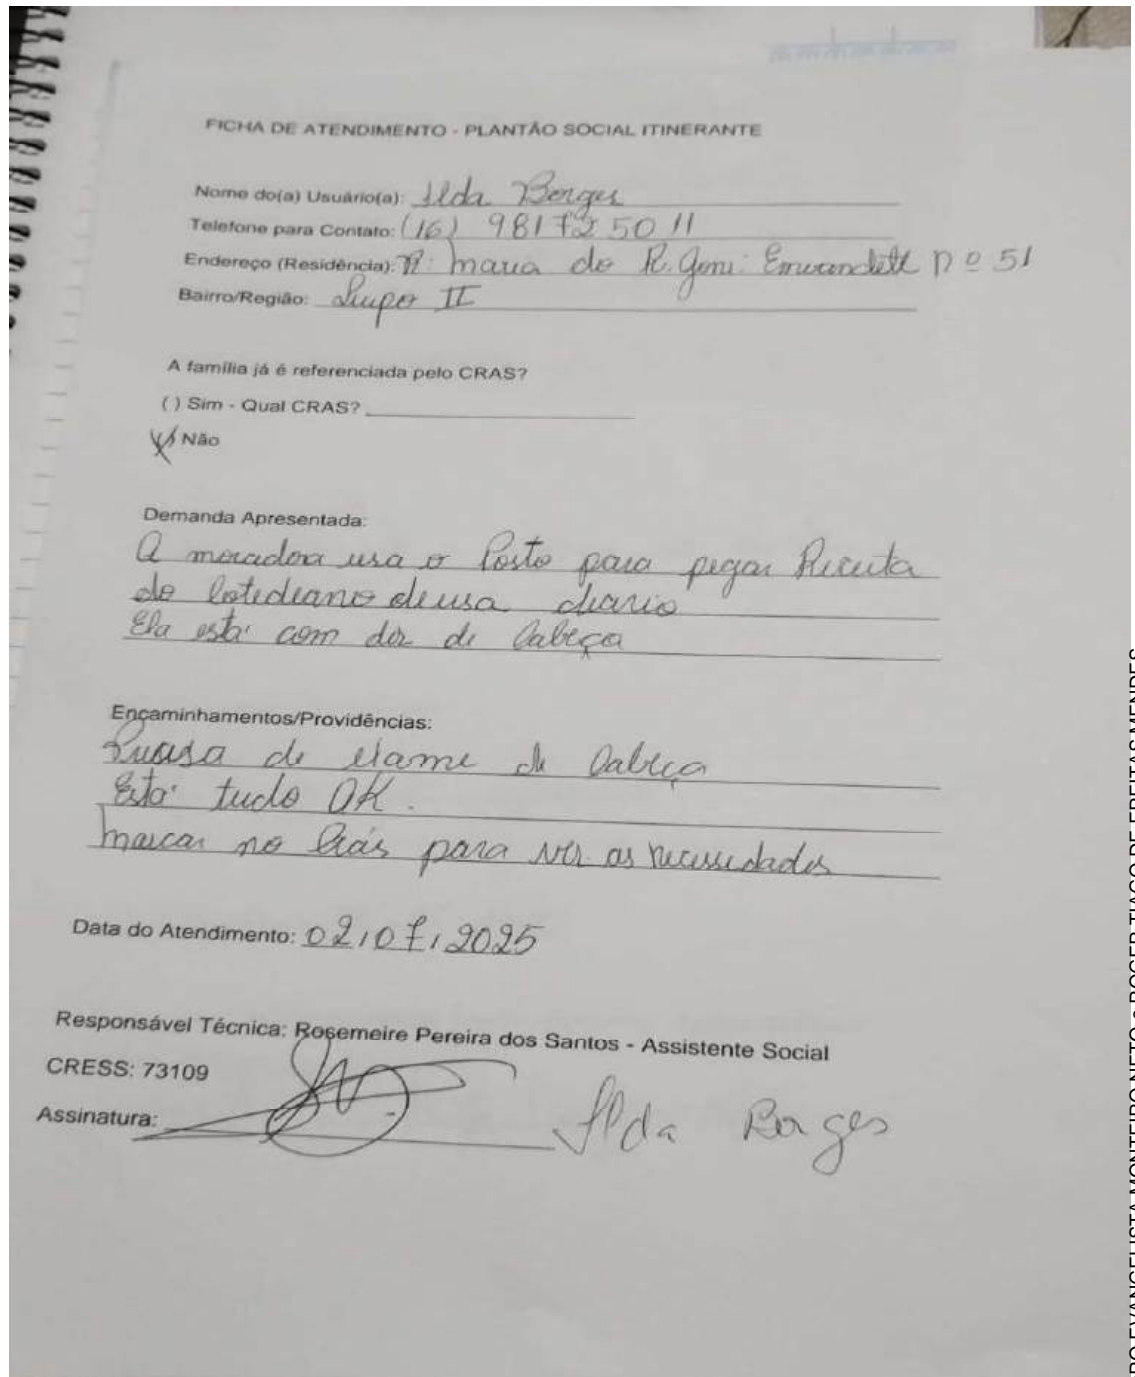 FICHA DE ATENDIMENTO - PLANTÃO SOCIAL ITINERANTE
Nome do(a) Usuário(a): Ilda Borges
Telefone para Contato: (16) 981725011
Endereço (Residência): R: Maria do R. Gomi nº 51
Bairro/Região: Lupo II
A família já é referenciada pelo CRAS?
( ) Sim - Qual CRAS?
(X) Não
Demanda Apresentada:
A moradora usa o Posto para pegar Receita
do cotediano deusa diario
Ela está com dor de Cabeça
Encaminhamentos/Providências:
de Cabeça
Está tudo OK.
marcar no Crás para ver as necessidades
Data do Atendimento: 02/07/2025
Responsável Técnica: Rosemeire Pereira dos Santos - Assistente Social
CRESS: 73109
Assinatura:
Ilda Borges
EVANGELISTA MONTEIRO NETO e ROGER TIAGO DE FREITAS MENDES